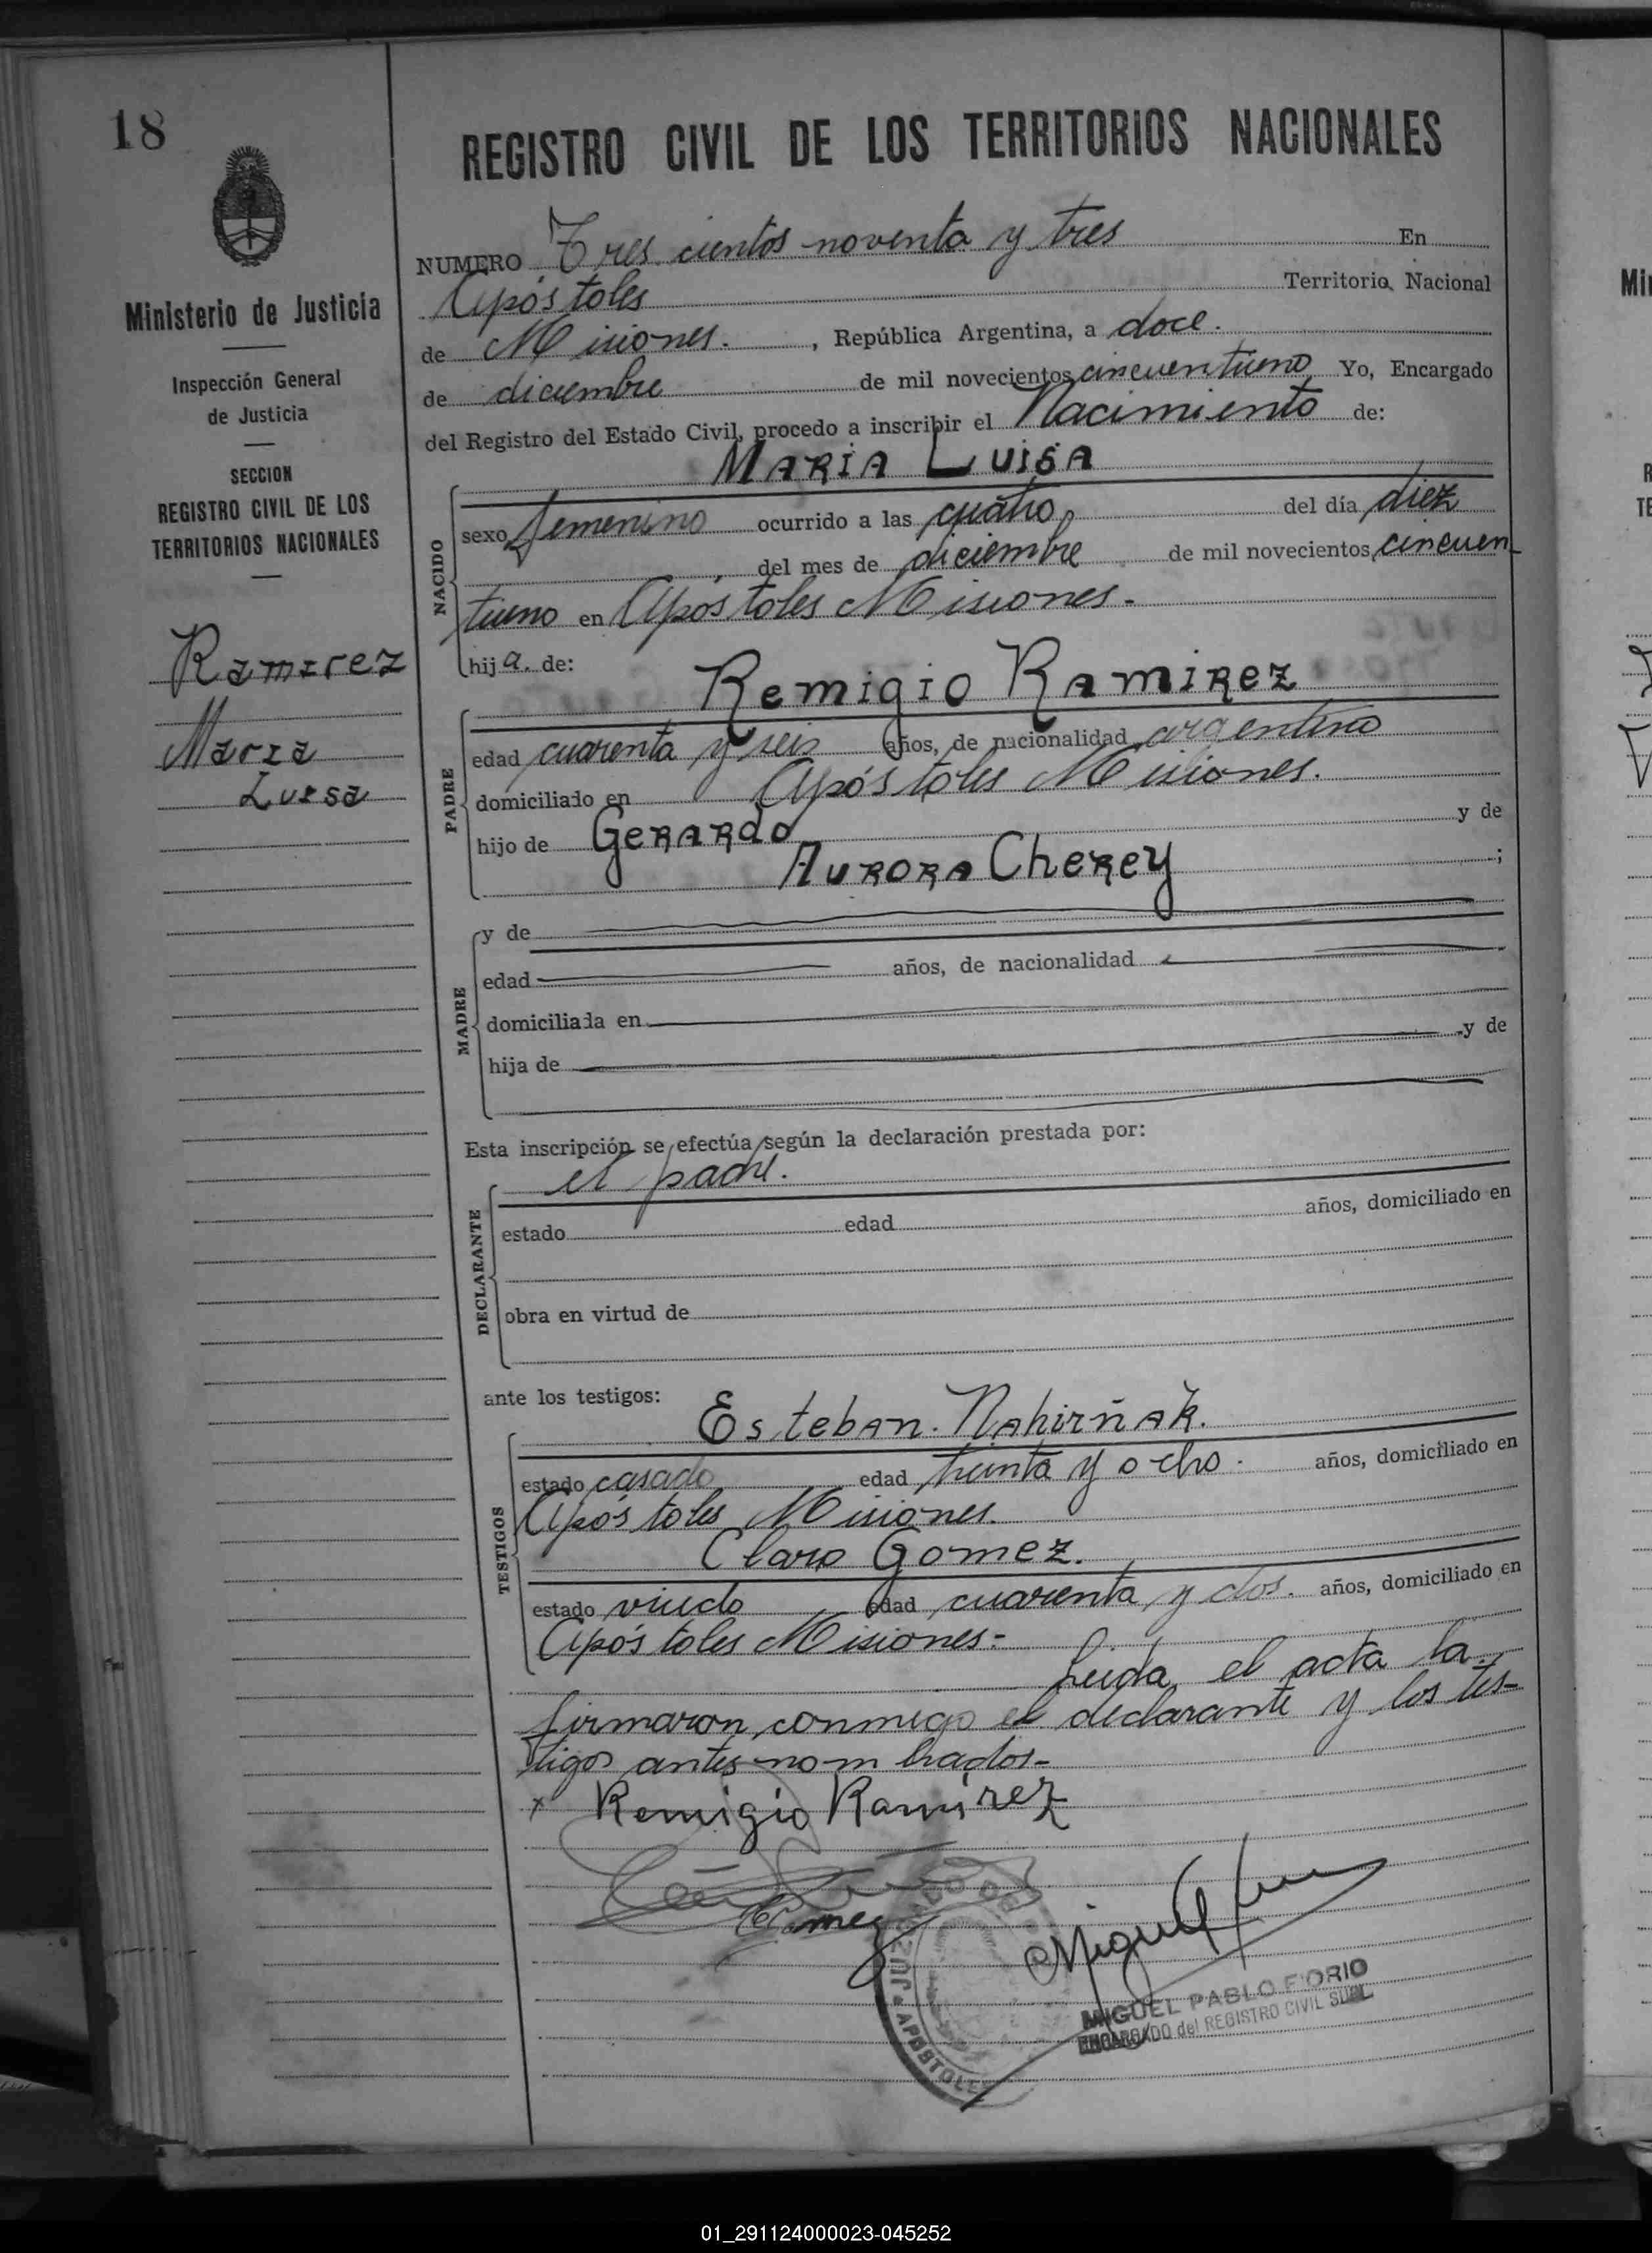 18
REGISTRO CIVIL DE LOS TERRITORIOS NACIONALES
Ministerio de Justicia
Inspección General
de Justicia
SECCION
REGISTRO CIVIL DE LOS
TERRITORIOS NACIONALES
Ramirez
Maria
Luisa
NUMERO Tres cientos noventa y tres En
Apóstoles Territorio Nacional
de Misiones. , República Argentina, a doce.
de diciembre de mil novecientos cincuentiuno Yo, Encargado
del Registro del Estado Civil, procedo a inscribir el Nacimiento de:
MARIA LUISA
NACIDO
sexo femenino ocurrido a las cuatro del día diez
del mes de diciembre de mil novecientos cincuen-
tiuno en Apóstoles Misiones.-
hija. de:
Remigio Ramirez
PADRE
edad cuarenta y seis años, de nacionalidad argentino
domiciliado en Apóstoles Misiones.
hijo de Gerardo y de
Aurora Cherey ;
MADRE
y de
edad años, de nacionalidad
domiciliada en
hija de y de
Esta inscripción se efectúa según la declaración prestada por:
el padre.
DECLARANTE
estado edad años, domiciliado en
obra en virtud de
ante los testigos:
Esteban Nahirñak.
TESTIGOS
estado casado edad treinta y ocho. años, domiciliado en
Apóstoles Misiones.
Claro Gomez.
estado viudo edad cuarenta y dos. años, domiciliado en
Apóstoles Misiones.-
Leida el acta la
firmaron conmigo el declarante y los tes-
tigos antes nombrados-
x Remigio Ramirez
Gomez
Miguel
JUZGADO DE
APOSTOLES
MIGUEL PABLO FIORIO
ENCARGADO del REGISTRO CIVIL SUPL
Mi
R
TE
01_291124000023-045252